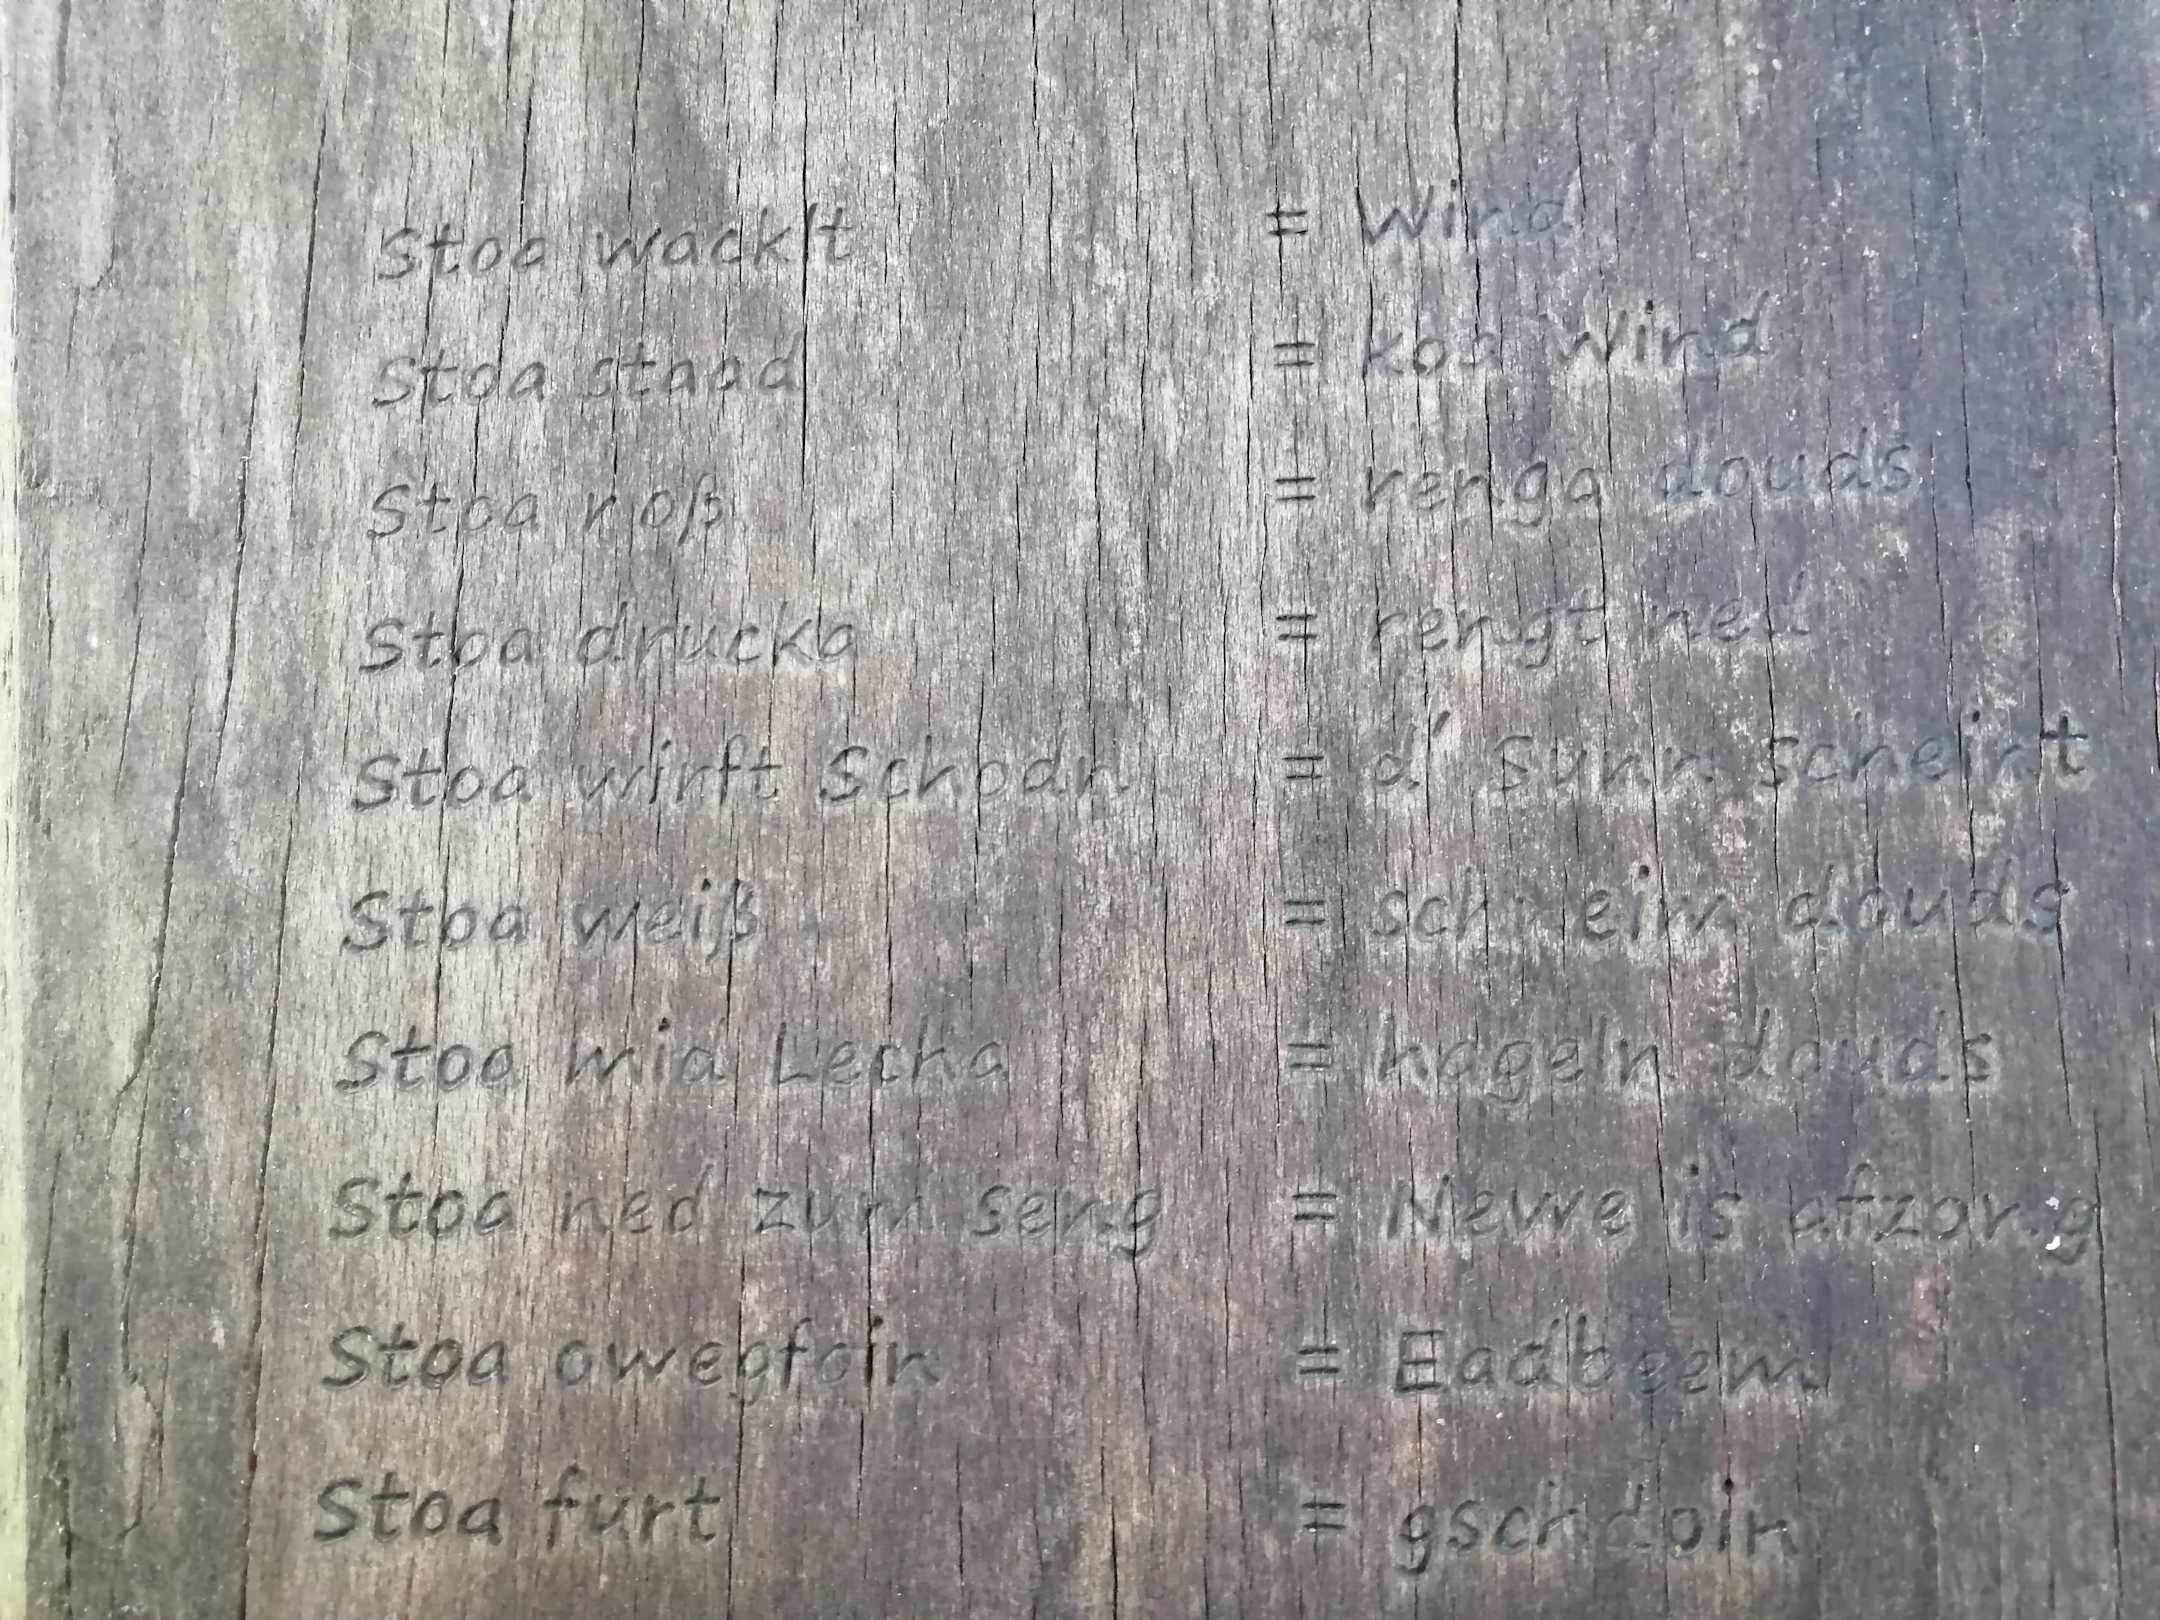 Stoa wacklt = Wind
Stoa staad = koa Wind
Stoa noß = renga douds
Stoa drucka = rengt ned
Stoa wirft Schodn = d' Sunn scheint
Stoa weiß = schneim douds
Stoa mia Lecha = hageln douds
Stoa ned zum seng = Newe is afzong
Stoa owegfoin = Eadbeem
Stoa furt = gschdoin